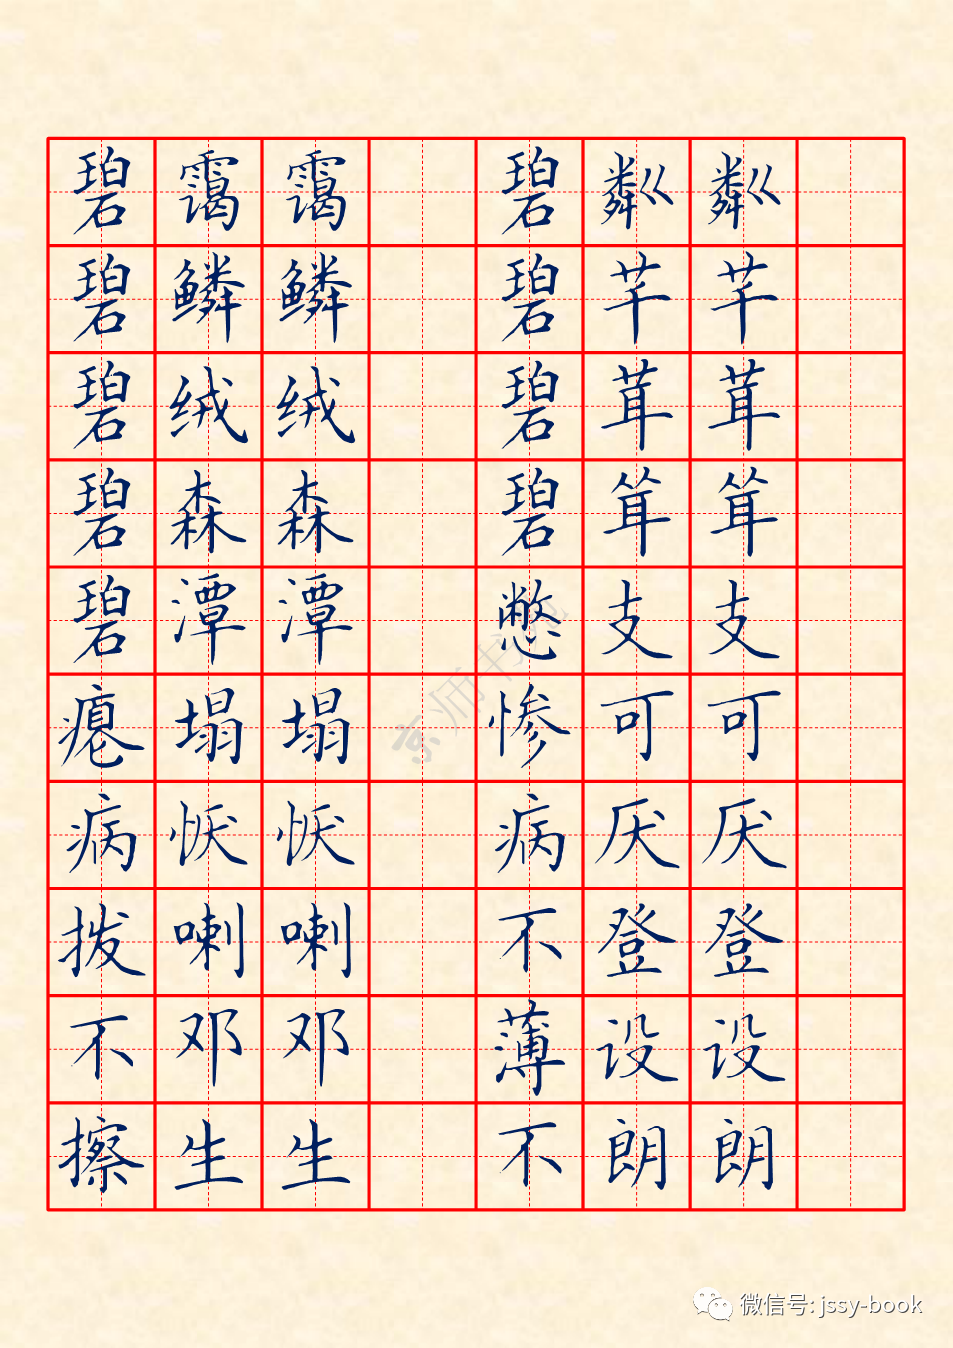 碧霭霭 碧粼粼
碧鳞鳞 碧芊芊
碧绒绒 碧茸茸
碧森森 碧
碧潭潭 憋支支
瘪塌塌 惨可可
病恹恹 病厌厌
拨喇喇 不登登
不邓邓 薄设设
擦生生 不朗朗
京师书苑
微信号: jssy-book